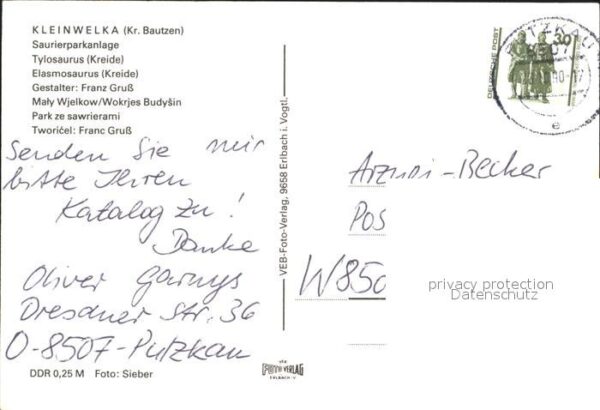 KLEINWELKA (Kr. Bautzen)
Saurierparkanlage
Tylosaurus (Kreide)
Elasmosaurus (Kreide)
Gestalter: Franz Gruß
Mały Wjelkow/Wokrjes Budyšin
Park ze sawrierami
Tworićel: Franc Gruß
Senden Sie mir
bitte Ihren
Katalog zu!
Danke
Oliver Garnys
Dresdner Str. 36
O-8507-Putzkau
DDR 0,25 M Foto: Sieber
VEB-Foto-Verlag, 9658 Erlbach i. Vogtl.
VERLAG
DEUTSCHE POST
30
PUTZKAU
8507
e
Arznei-Becker
Pos
W850
privacy protection
Datenschutz